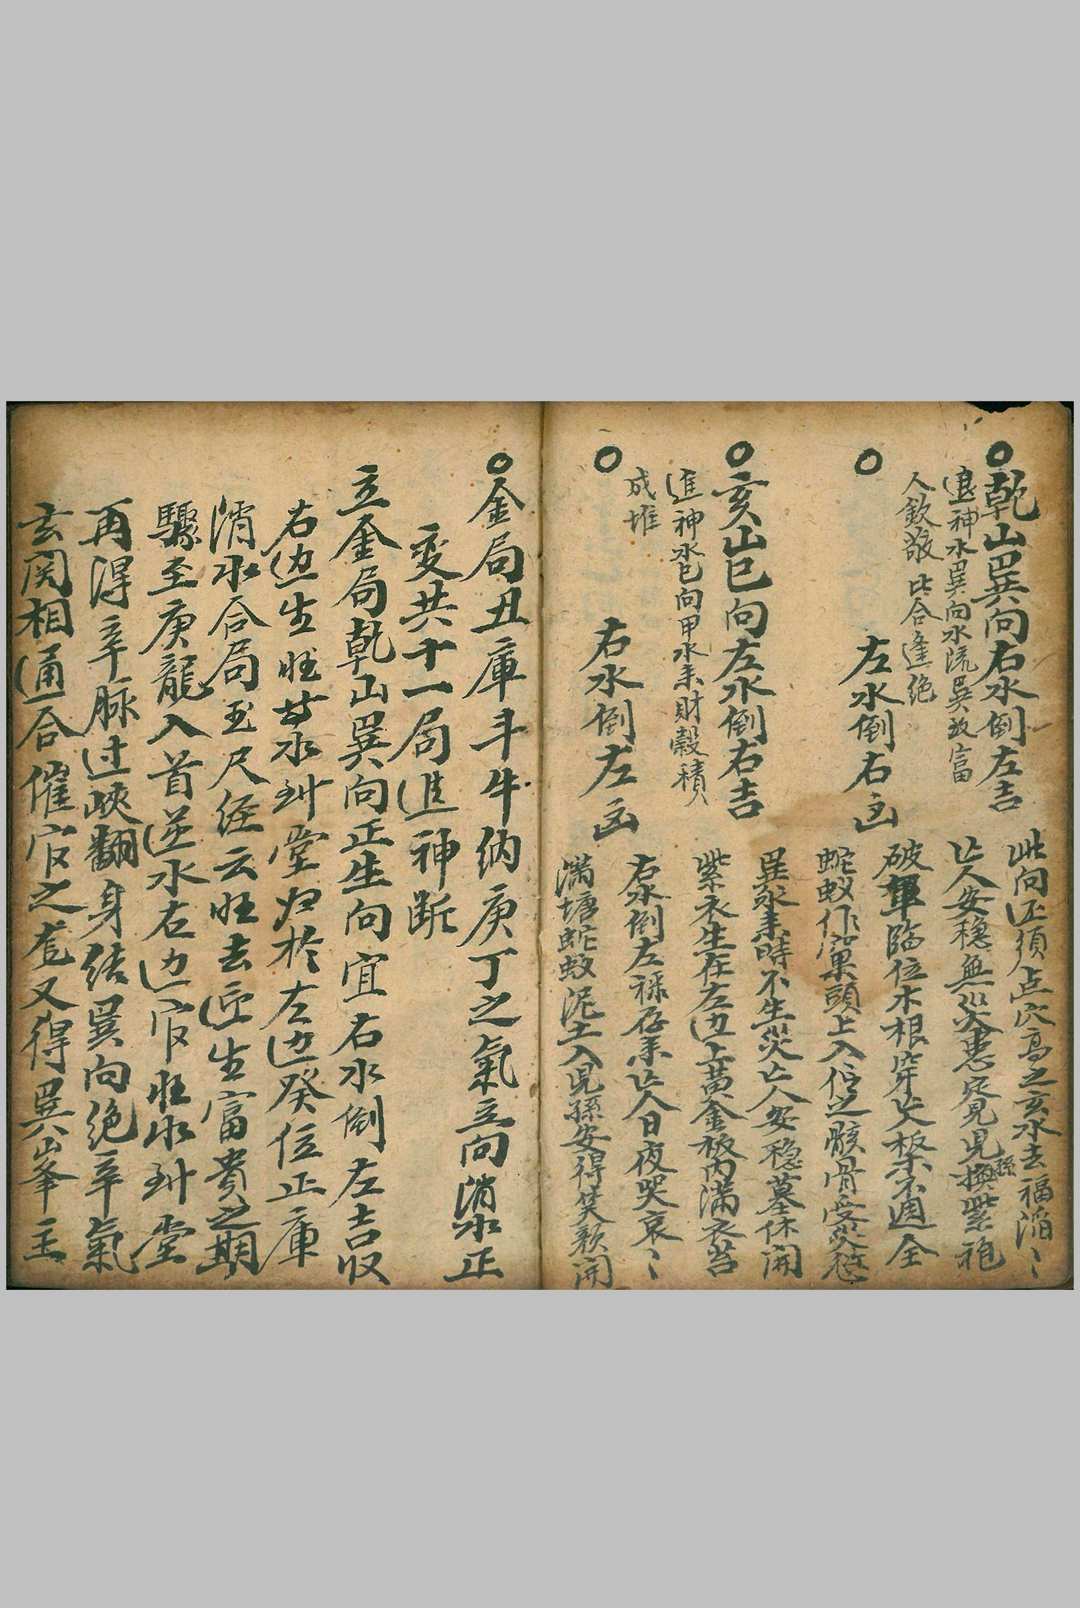 ○乾山巽向右水倒左吉
退神水巽向水流巽敀富
人欽敬 此合逢絶
○左水倒右凶
○亥山巳向左水倒右吉
進神水巳向甲水耒財穀積
成堆
○右水倒左凶
此向正须点穴高之玄水去福滔〻
亡人安穏無災患定見児孫換紫袍
破軍臨位木根穿尖板不週全
蛇蚁作窠頭上入伝之骸骨受災愆
巽水耒時不生災亡人安穏墓休開
紫衣生在左边上黄金板内満衣苔
右水倒左禄存耒亡人日夜哭哀〻
満塘蛇蚁泥土入児孫安得笑顔開
○金局丑庫斗牛纳庚丁之氣立向消水正
変共十一局進神断
立金局乾山巽向正生向宜右水倒左吉収
右边生旺其水到堂归於左边癸位正庫
消水合局玉尺经云旺去迎生富貴之期
驟至庚龍入首逆水右边官旺水到堂
再得辛脉过峡翻身结巽向绝辛氣
玄関相通合催官之龙又得巽山峯主